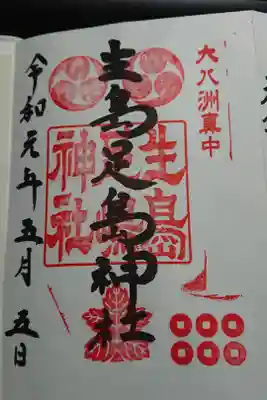 大八洲真中
生島足島神社
生島足島神社
令和元年五月五日